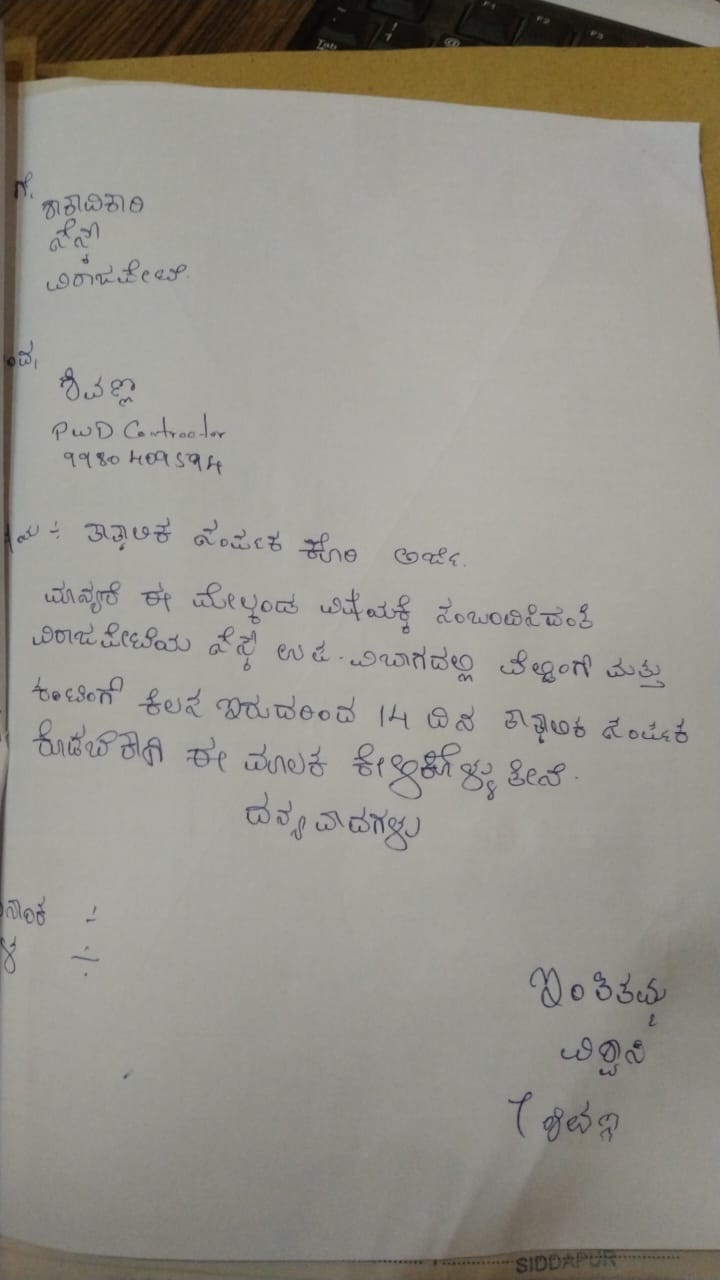 ಗೆ,
ಶಾಖಾಧಿಕಾರಿ
ಸೆಸ್ಕ್
ವಿರಾಜಪೇಟೆ.
ಇಂದ,
ಶಿವಣ್ಣ
PWD Contractor
9980409594
ವಿಷಯ :- ತಾತ್ಕಾಲಿಕ ಸಂರ್ಪಕ ಕೋರಿ ಅರ್ಜಿ.
ಮಾನ್ಯರೆ ಈ ಮೇಲ್ಕಂಡ ವಿಷಯಕ್ಕೆ ಸಂಬಂದಿಸಿದಂತೆ
ವಿರಾಜಪೇಟೆಯ ಸೆಸ್ಕ್ ಉಪ-ವಿಬಾಗದಲ್ಲಿ ವೆಲ್ಡಿಂಗ್ ಮತ್ತು
ಕಂಟಿಂಗ್ ಕೆಲಸ ಇರುದರಿಂದ 14 ದಿನ ತಾತ್ಕಾಲಿಕ ಸಂರ್ಪಕ
ಕೊಡಬೇಕಾಗಿ ಈ ಮೂಲಕ ಕೇಳಿಕೊಳ್ಳುತೇನೆ.
ದನ್ಯವಾದಗಳು
ದಿನಾಂಕ :-
ಸ್ಥಳ :-
ಇಂತಿತಮ್ಮ
ವಿಶ್ವಾಸಿ
ಶಿವಣ್ಣ
SIDDAPUR